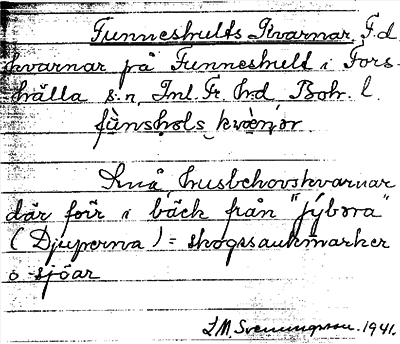 Funneshults Kvarnar, F.d.
kvarnar på Funneshult i Fors-
hälla s:n, Inl. Fr. hd, Boh. l.
fùnshols kvànjor.
Små husbehovskvarnar
där förr i bäck från "jỳbora"
(Djuperna) = skogssankmarker
o sjöar
L.M. Svenungsson. 1941.